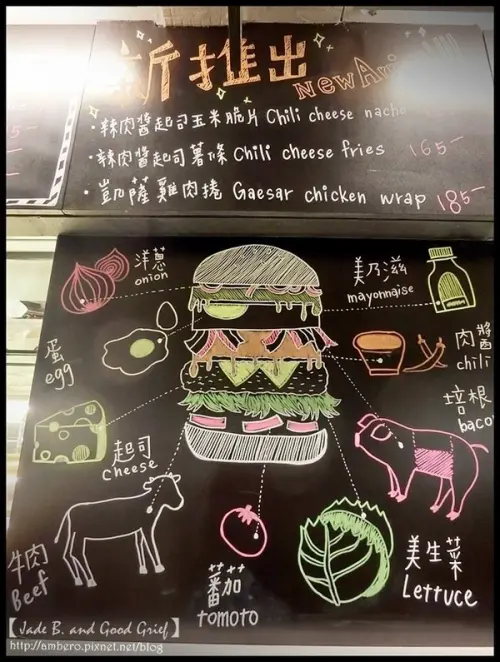 新推出 New
·辣肉醬起司玉米脆片 Chili cheese nacho
·辣肉醬起司薯條 Chili cheese fries 165-
·凱薩雞肉捲 Gaesar chicken wrap 185-
洋蔥
onion
美乃滋
mayonnaise
蛋
egg
肉醬
chili
培根
baco
起司
cheese
牛肉
Beef
蕃加
tomoto
美生菜
Lettuce
【Jade B. and Good Grief】
http://ambero.pixnet.net/blog